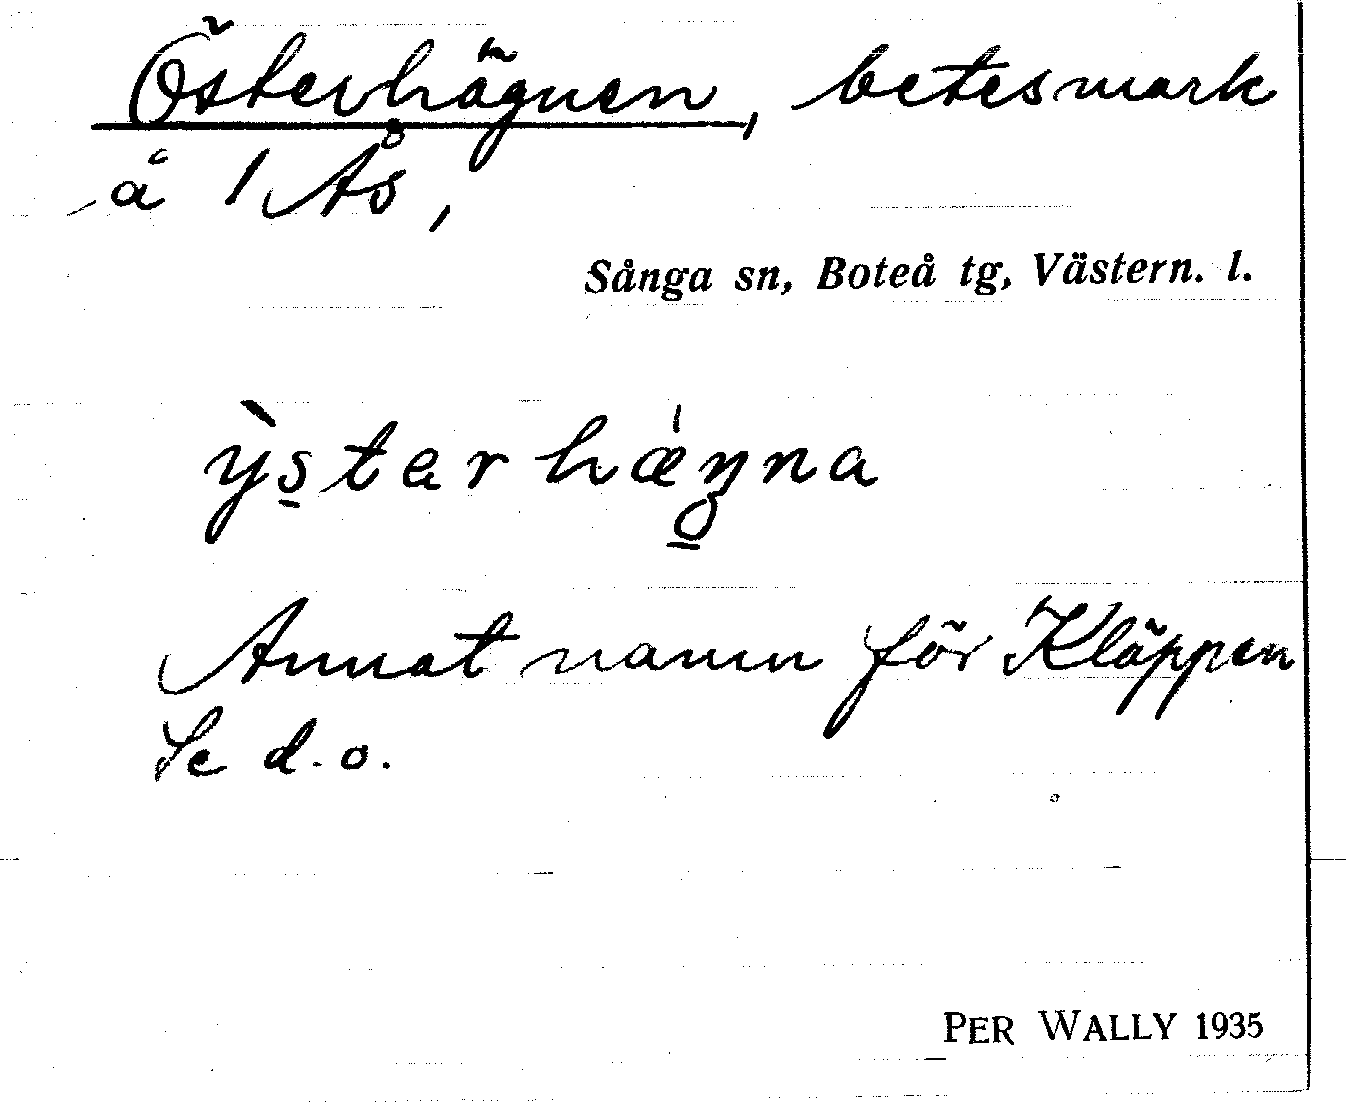 Österhägnen, betesmark
å 1 Ås,
Sånga sn, Boteå tg, Västern. l.
ỳs̱terhǽŋna
Annat namn för Kläppen
Se d.o.
PER WALLY 1935